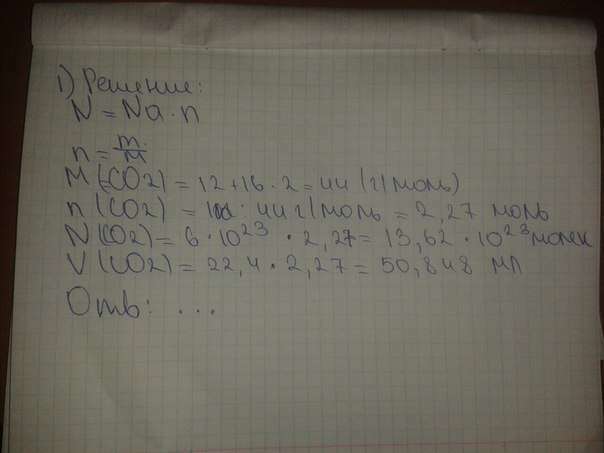 1) Решение:
N = Na · n
n = m/M
M (CO2) = 12 + 16 · 2 = 44 (г/моль)
n (CO2) = 100 : 44 г/моль = 2,27 моль
N (CO2) = 6 · 10²³ · 2,27 = 13,62 · 10²³ молек
V (CO2) = 22,4 · 2,27 = 50,848 мл
Отв: ...